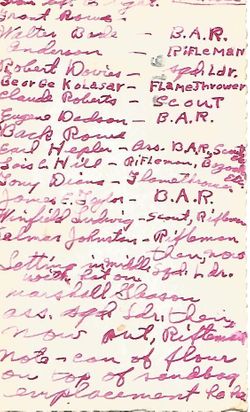 Front Rowe
Walter Bede - B.A.R.
Anderson - RifleMan
Robert Davies - sqd. Ldr.
George Kolasar - FlameThrower
Claude Roberts - Scout
Eugene Dodson - B.A.R.
Back Rowe
Earl Hepler - Ass. BAR, Scout
Lois C Hill - Rifleman,
Tony Dions - Flamethrower
James E. Taylor - B.A.R.
Winfield Ludwig - Scout, Rifleman
Elmer Johnston - Rifleman
Setting in middle then, now
with hat on sqd. Ldr.
Marshall Gleason
ass. sqd Ldr, then,
now Rifleman
note - can of flour
on top of sandbag
emplacement